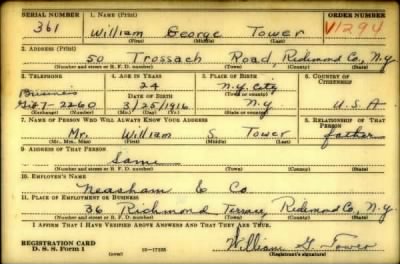 SERIAL NUMBER 1. NAME (Print) ORDER NUMBER
361 William George Tower V1294
(First) (Middle) (Last)
2. ADDRESS (Print)
50 Trossach Road, Richmond Co., N.Y.
(Number and street or R. F. D. number) (Town) (County) (State)
3. TELEPHONE 4. AGE IN YEARS 5. PLACE OF BIRTH 6. COUNTRY OF CITIZENSHIP
Business 24 N.Y. City
DATE OF BIRTH (Town or county)
7-2260 3/25/1916 N.Y. U.S.A
(Mo.) (Day) (Yr.) (State or country)
7. NAME OF PERSON WHO WILL ALWAYS KNOW YOUR ADDRESS 8. RELATIONSHIP OF THAT PERSON
Mr. William S Tower father
(Mr., Mrs., Miss) (First) (Middle) (Last)
9. ADDRESS OF THAT PERSON
Same
(Number and street or R. F. D. number) (Town) (County) (State)
10. EMPLOYER'S NAME
Neasham & Co
11. PLACE OF EMPLOYMENT OR BUSINESS
36 Richmond Terrace, Richmond Co., N.Y.
(Number and street or R. F. D. number) (Town) (County) (State)
I AFFIRM THAT I HAVE VERIFIED ABOVE ANSWERS AND THAT THEY ARE TRUE.
REGISTRATION CARD
D. S. S. Form 1 (over) 16—17105 William G. Tower
(Registrant's signature)